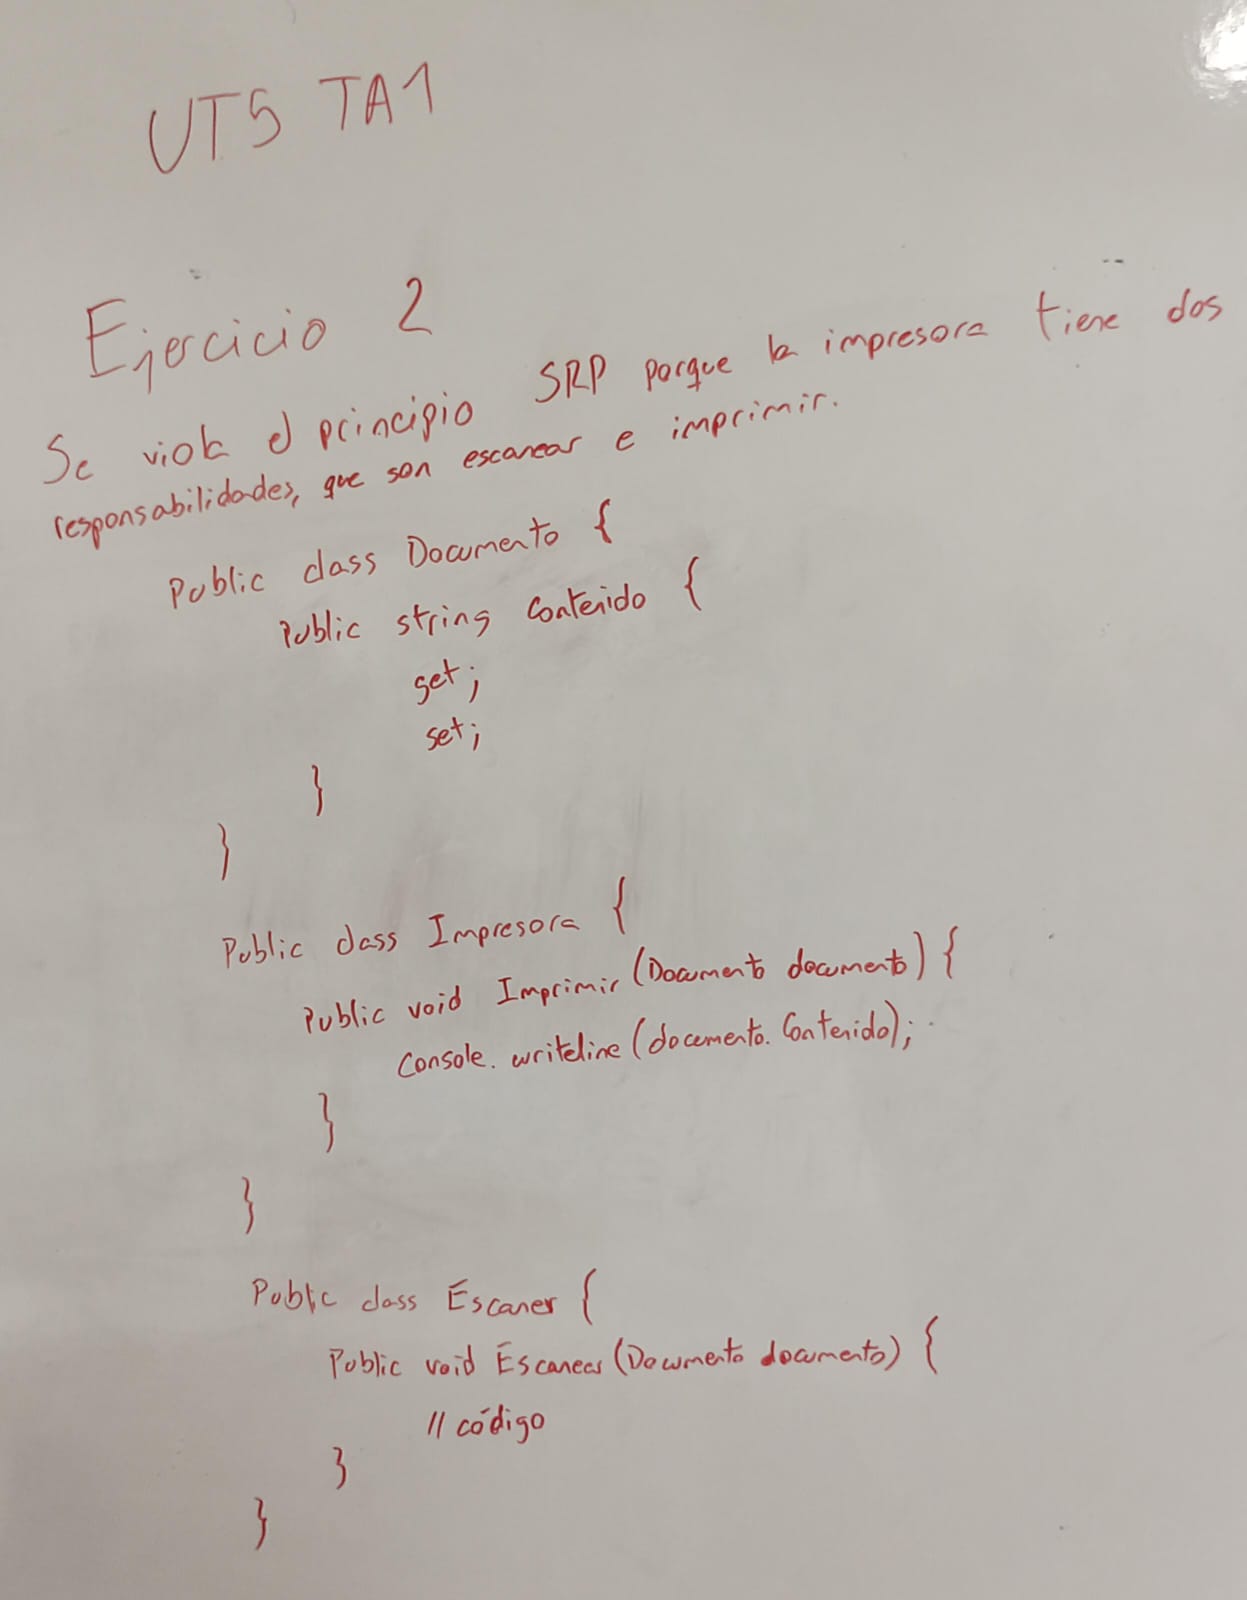 UT5 TA1
Ejercicio 2
Se viola el principio SRP porque la impresora tiene dos
responsabilidades, que son escanear e imprimir.
Public class Documento {
Public string Contenido {
get;
set;
}
}
Public class Impresora {
Public void Imprimir (Documento documento) {
Console.writeline (documento.Contenido);
}
}
Public class Escaner {
Public void Escanear (Documento documento) {
// código
}
}